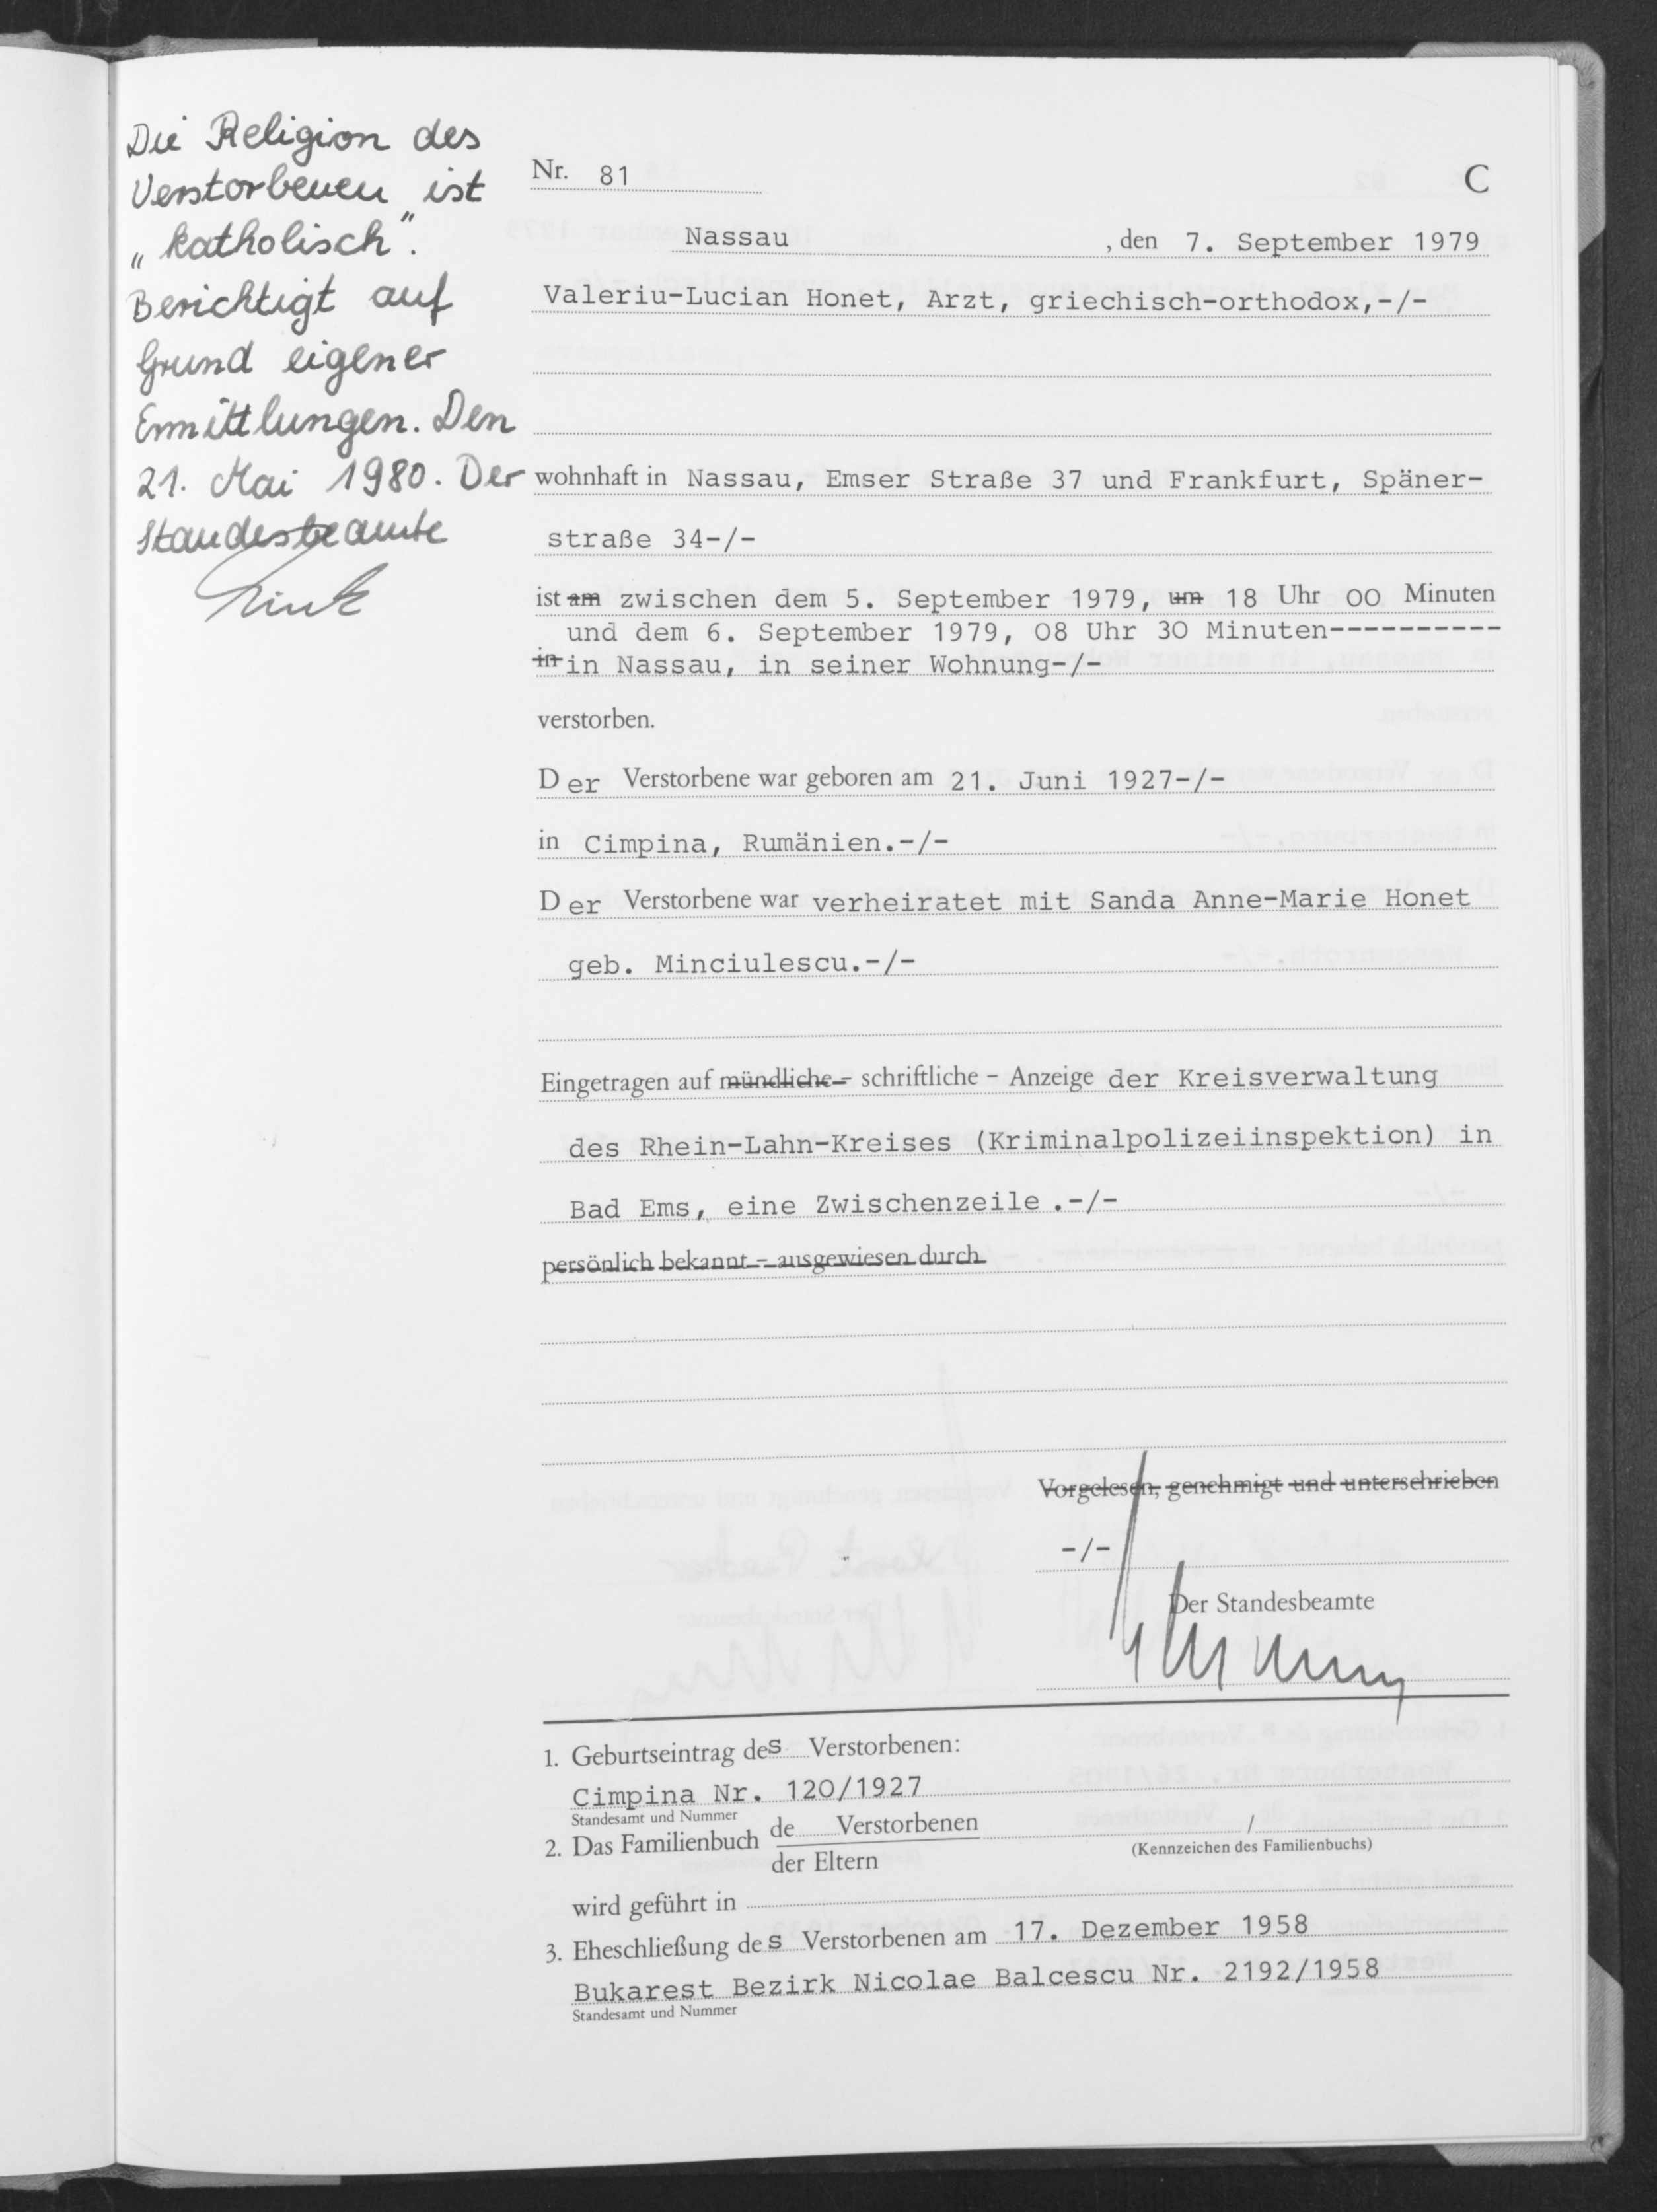 Die Religion des
Verstorbenen ist
„katholisch“.
Berichtigt auf
Grund eigener
Ermittlungen. Den
21. Mai 1980. Der
Standesbeamte
Nr. 81
C
Nassau , den 7. September 1979
Valeriu-Lucian Honet, Arzt, griechisch-orthodox,-/-
wohnhaft in Nassau, Emser Straße 37 und Frankfurt, Späner-
straße 34-/-
ist am zwischen dem 5. September 1979, um 18 Uhr 00 Minuten
und dem 6. September 1979, 08 Uhr 30 Minuten----------
in in Nassau, in seiner Wohnung-/-
verstorben.
Der Verstorbene war geboren am 21. Juni 1927-/-
in Cimpina, Rumänien.-/-
Der Verstorbene war verheiratet mit Sanda Anne-Marie Honet
geb. Minciulescu.-/-
Eingetragen auf mündliche - schriftliche - Anzeige der Kreisverwaltung
des Rhein-Lahn-Kreises (Kriminalpolizeiinspektion) in
Bad Ems, eine Zwischenzeile .-/-
persönlich bekannt - ausgewiesen durch
Vorgelesen, genehmigt und unterschrieben
-/-
Der Standesbeamte
1. Geburtseintrag des Verstorbenen:
Cimpina Nr. 120/1927
Standesamt und Nummer
2. Das Familienbuch de Verstorbenen /
der Eltern (Kennzeichen des Familienbuchs)
wird geführt in
3. Eheschließung des Verstorbenen am 17. Dezember 1958
Bukarest Bezirk Nicolae Balcescu Nr. 2192/1958
Standesamt und Nummer